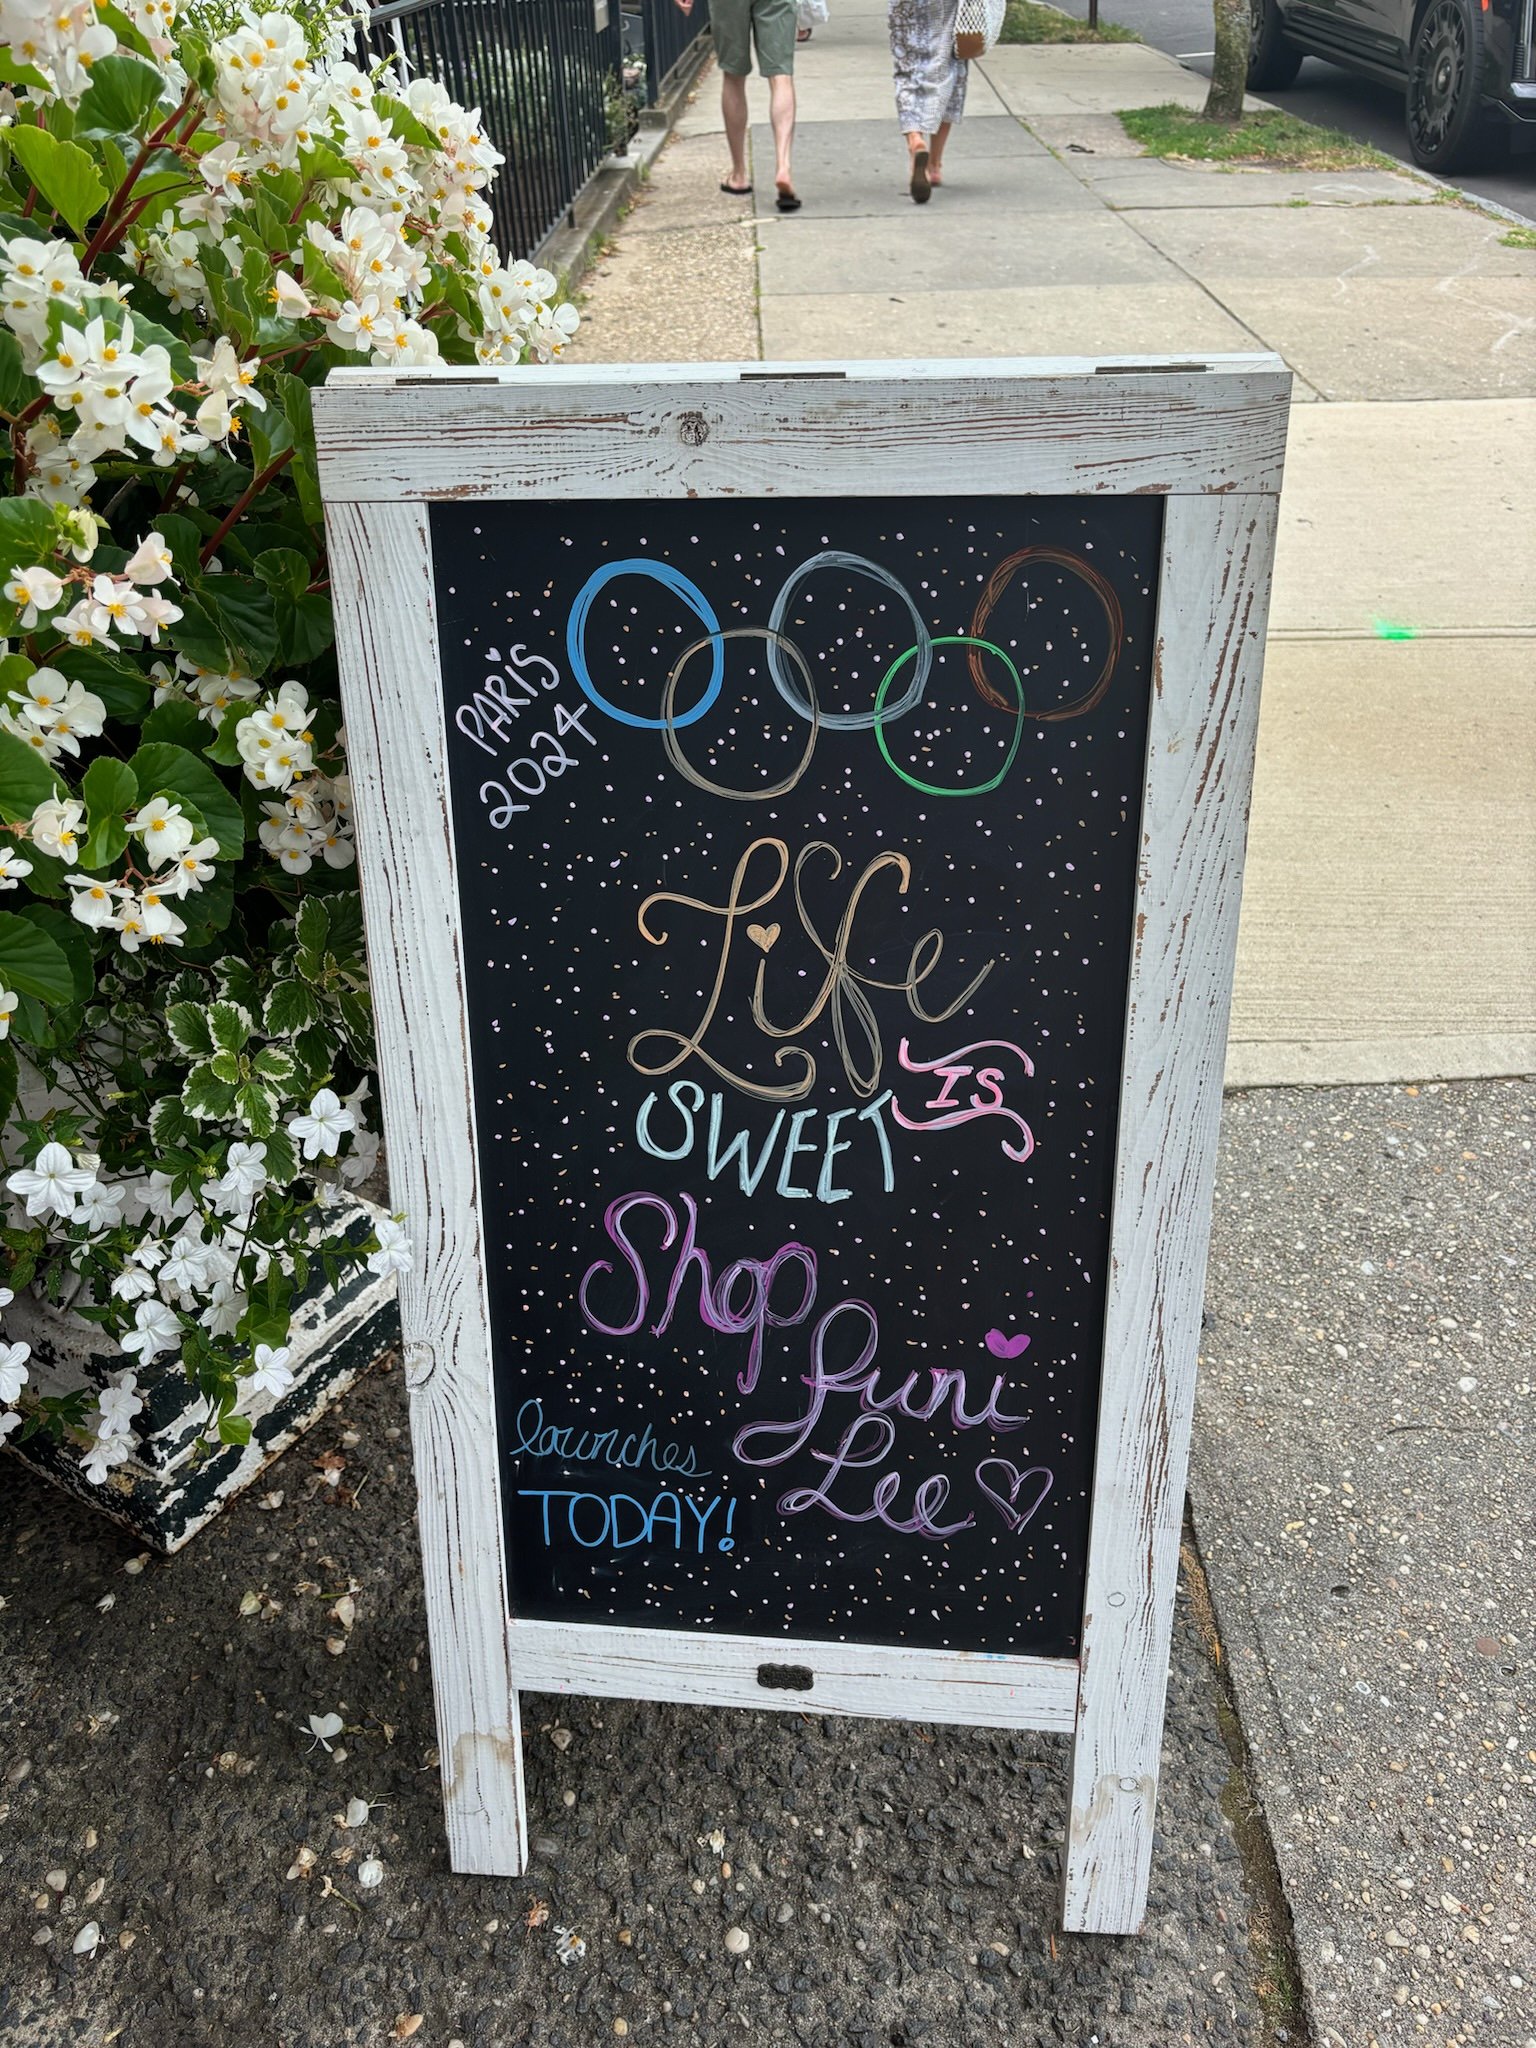 PARiS
2024
Life
IS
SWEET
Shop
Luni
Lee
launches
TODAY!